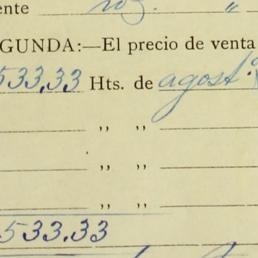 ente roz. "
GUNDA:—El precio de venta
533,33 Hts. de agost.º
,, ,,
,, ,,
,, ,,
533.33